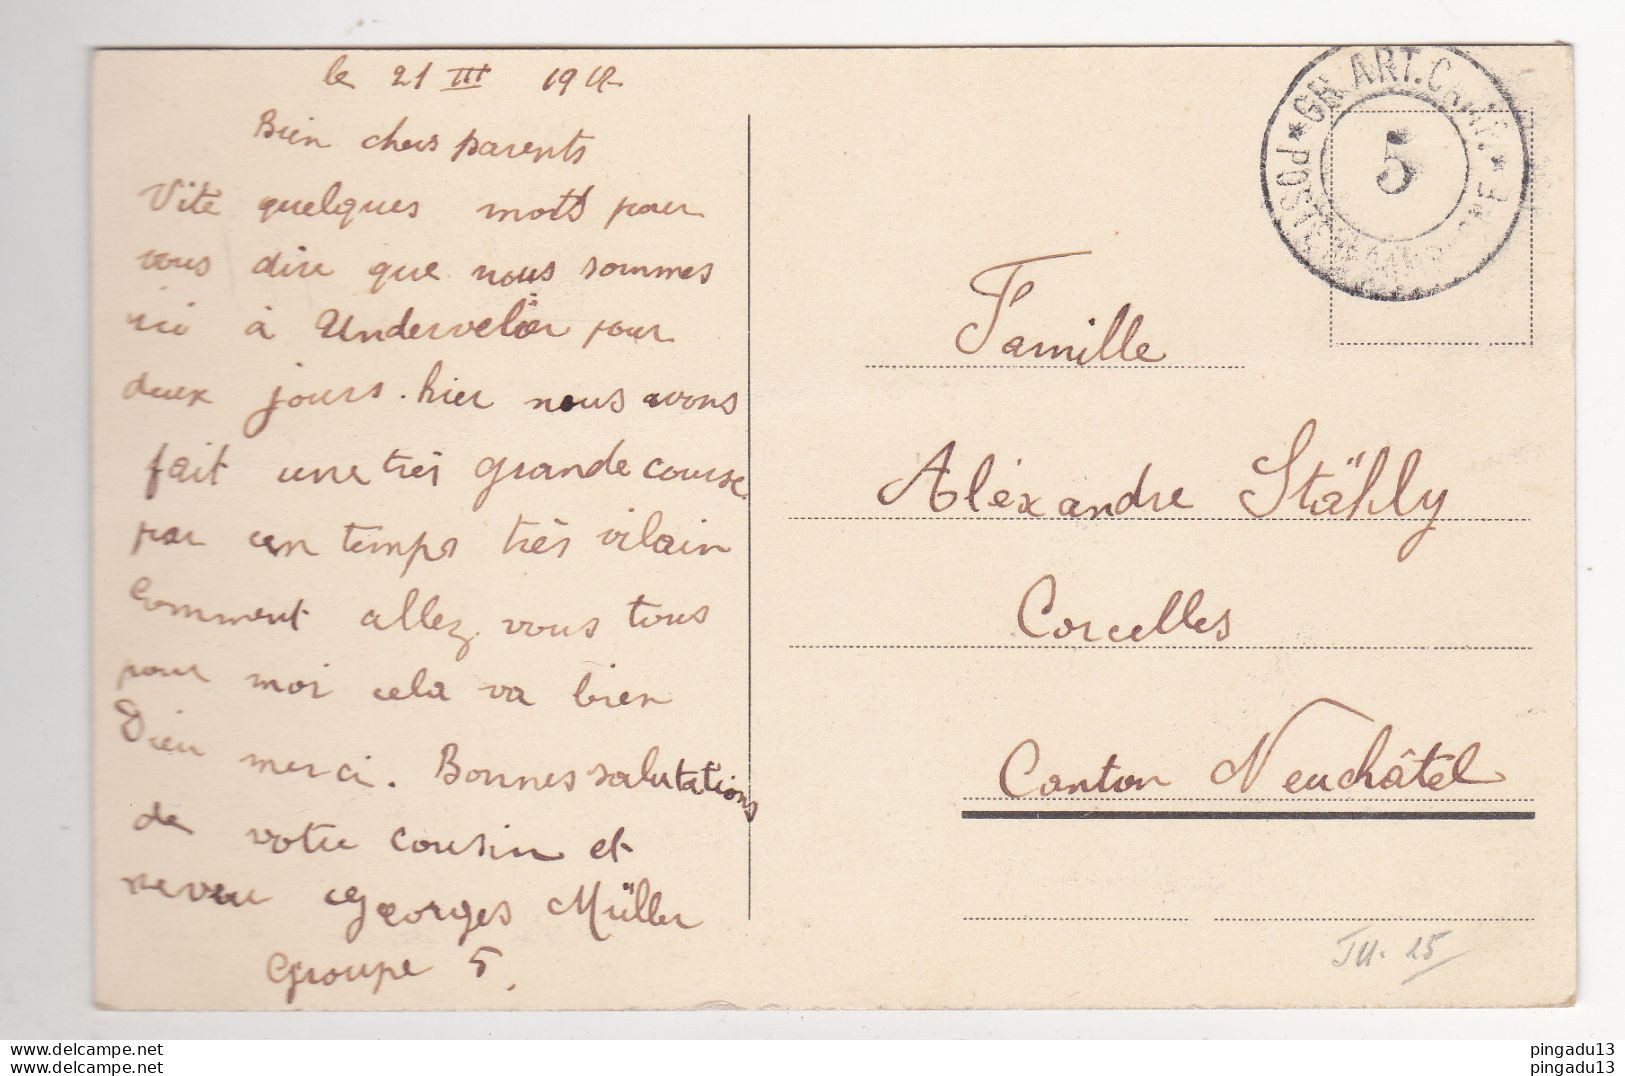 le 21 III 1912
Bien chers parents
Vite quelques mots pour
vous dire que nous sommes
ici à Undervelier pour
deux jours. hier nous avons
fait une très grande course
par un temps très vilain
Comment allez vous tous
pour moi cela va bien
Dieu merci. Bonnes salutations
de votre cousin et
neveu Georges Müller
Groupe 5.
* GR. ART. CAMP. *
POSTE DE CAMPAGNE
5
Famille
Aléxandre Stähly
Corcelles
Canton Neuchâtel
15
www.delcampe.net
www.delcampe.net
pingadu13
pingadu13